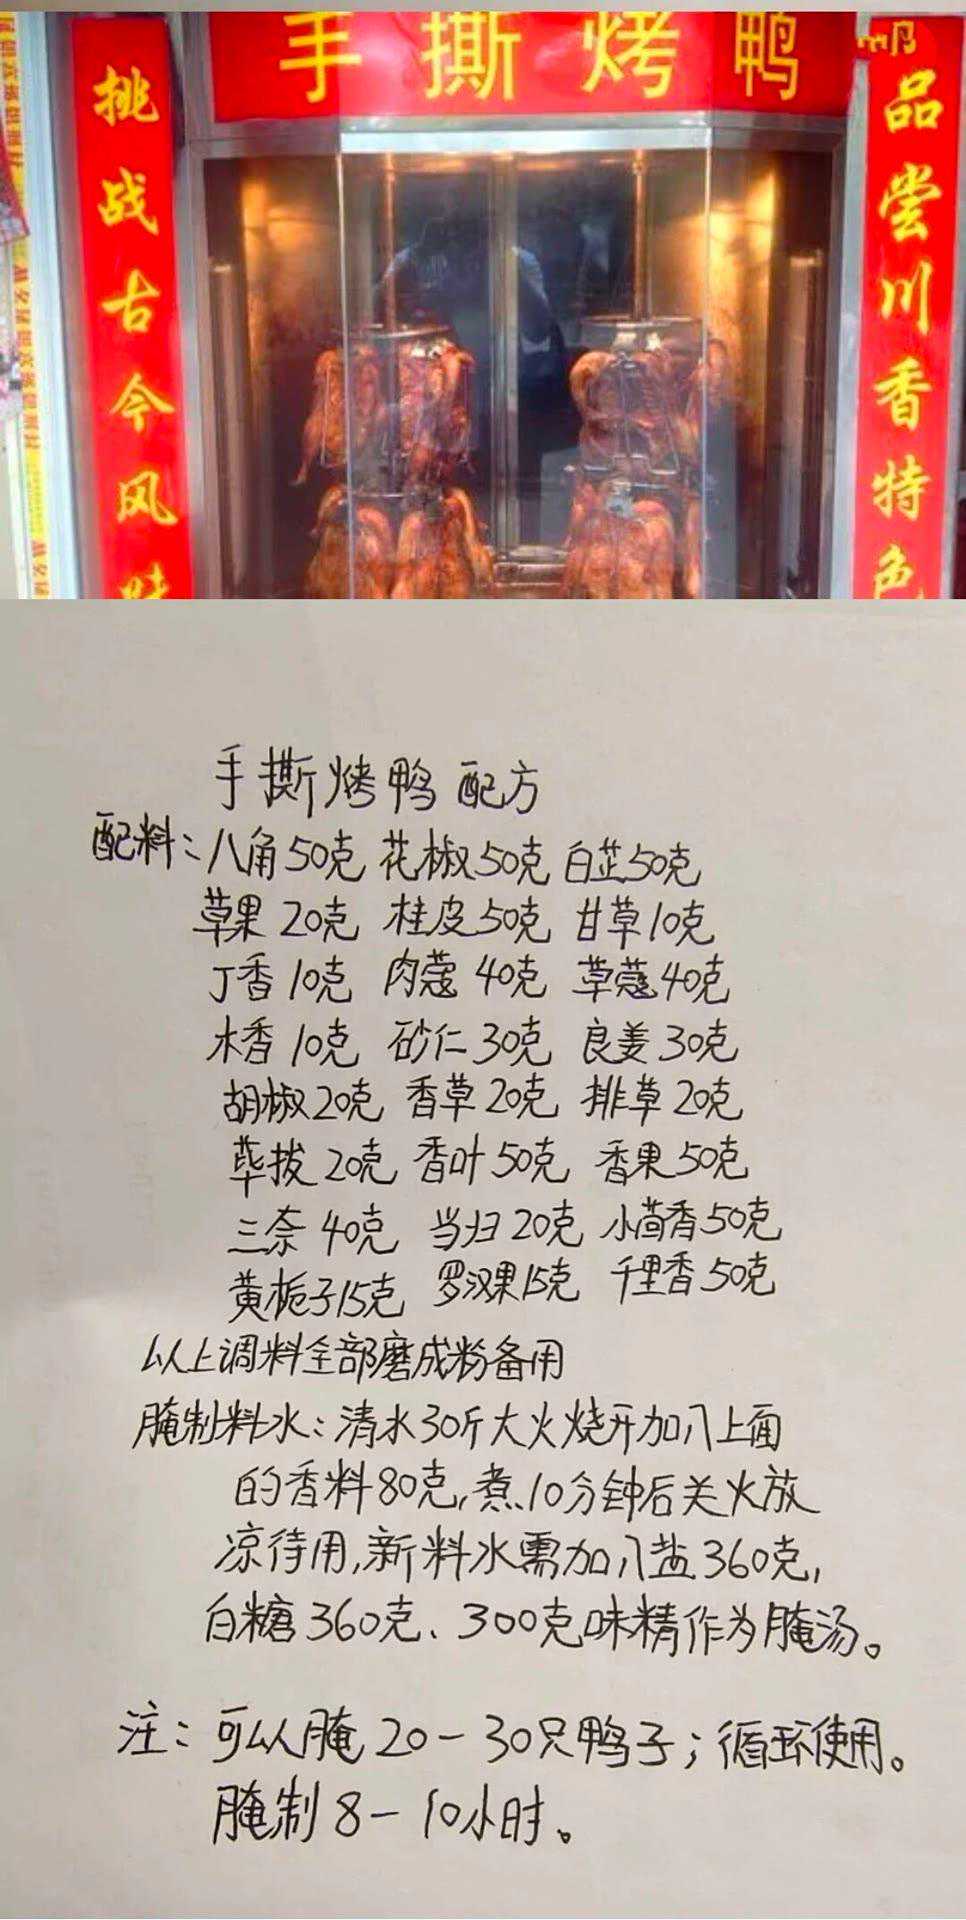 手撕烤鸭
挑战古今风味
品尝川香特色
手撕烤鸭 配方
配料：八角50克 花椒50克 白芷50克
草果 20克 桂皮50克 甘草10克
丁香 10克 肉蔻 40克 草蔻40克
木香 10克 砂仁 30克 良姜 30克
胡椒20克 香草 20克 排草 20克
荜拨 20克 香叶 50克 香果 50克
三奈 40克 当归 20克 小茴香 50克
黄栀子15克 罗汉果15克 千里香 50克
以上调料全部磨成粉备用
腌制料水：清水30斤大火烧开加入上面
的香料80克,煮10分钟后关火放
凉待用,新料水需加入盐360克,
白糖360克、300克味精作为腌汤。
注：可以腌 20-30只鸭子；循环使用。
腌制 8-10小时。